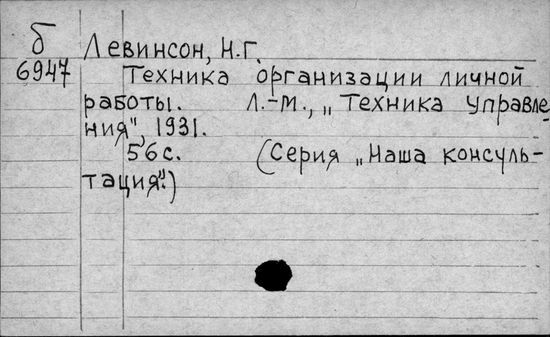 б
6947
Левинсон, Н.Г.
Техника организации личной
работы. Л.-М., „Техника управле-
ния", 1931.
56 с. (Серия „Наша консуль-
тация".)